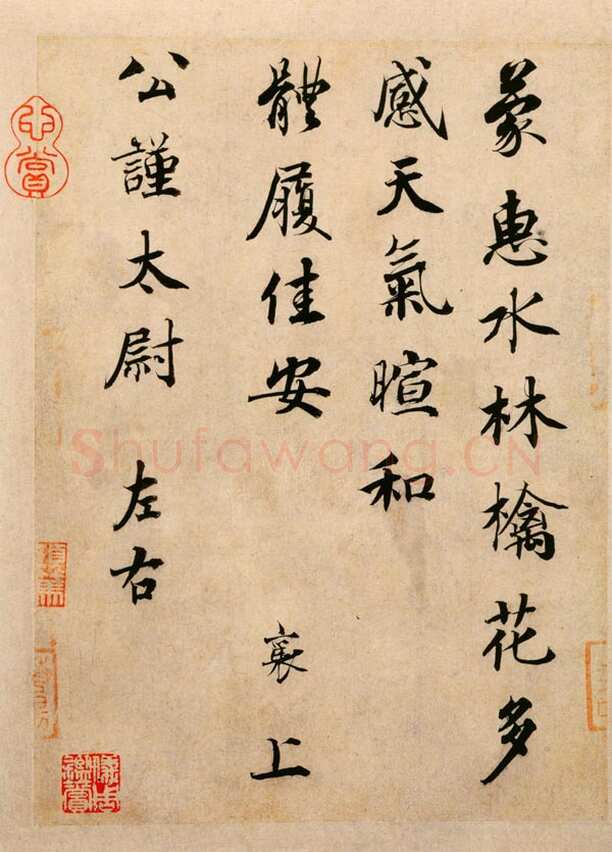 蒙惠水林檎花多
感天氣暄和
體履佳安 襄上
公謹太尉 左右
心賞
Shufawang.CN